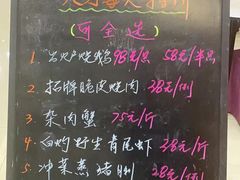 (可全选)
1. 岩炉烧鹅98元/只 58元/半只
2. 招牌脆皮烧肉 38元/例
3. 杂肉蟹 75元/斤
4. 白灼野生青尾虾 38元/斤
5. 冲菜蒸猪𦟌 28元/例